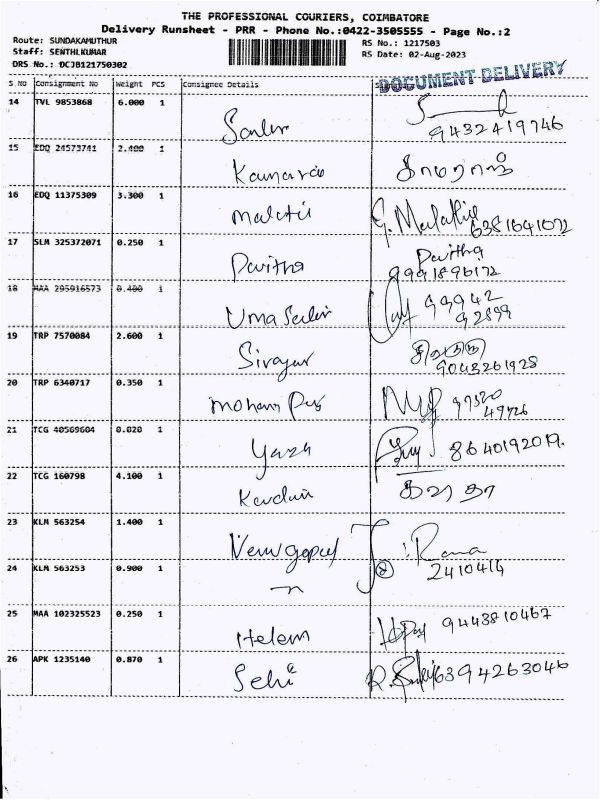 THE PROFESSIONAL COURIERS, COIMBATORE
Delivery Runsheet - PRR - Phone No.:0422-3505555 - Page No.:2
Route: SUNDAKAMUTHUR RS No.: 1217503
Staff: SENTHLKUMAR RS Date: 02-Aug-2023
DRS No.: DCJB121750302
DOCUMENT DELIVERY
S No Consignment No Weight PCS Consignee Details
14 TVL 9853868 6.000 1
9432419746
15 EDQ 24573741 2.400 1
Kamaraj காமராஜ்
16 EDQ 11375309 3.300 1
Malathi G. Malathi
6381641072
17 SLM 325372071 0.250 1
Pavitha Pavitha
9991896172
18 MAA 295916573 0.400 1
Uma 99942
92899
19 TRP 7570084 2.600 1
9043261928
20 TRP 6340717 0.350 1
Mohan 97520
49726
21 TCG 40569604 0.020 1
8640192019.
22 TCG 160798 4.100 1
23 KLM 563254 1.400 1
Venugopal : Rama
24 KLM 563253 0.900 1
2410414
25 MAA 102325523 0.250 1
Helem 9443810467
26 APK 1235140 0.870 1
Selvi 6394263046